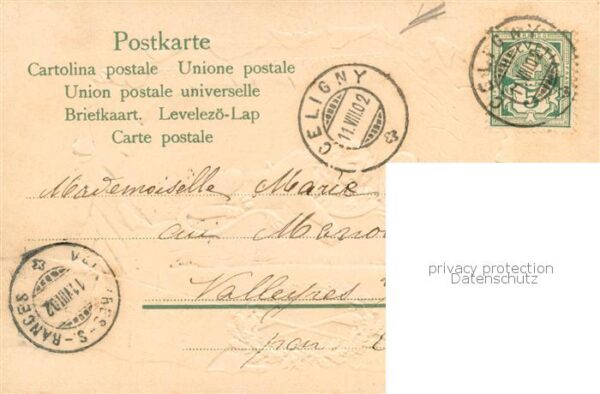 Postkarte
Cartolina postale Unione postale
Union postale universelle
Briefkaart. Levelező-Lap
Carte postale
CELIGNY
11.VIII.02
CELIGNY
11.VIII.02
HELVETIA
5
Mademoiselle Marie
au
Valleyres
par
11.VIII.02
S-RANCES
privacy protection
Datenschutz